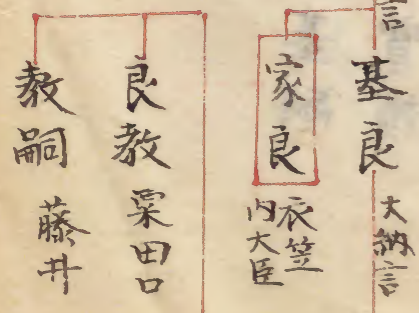 言
基良 大納言
家良 衣笠
内大臣
良教 粟田口
教嗣 藤井